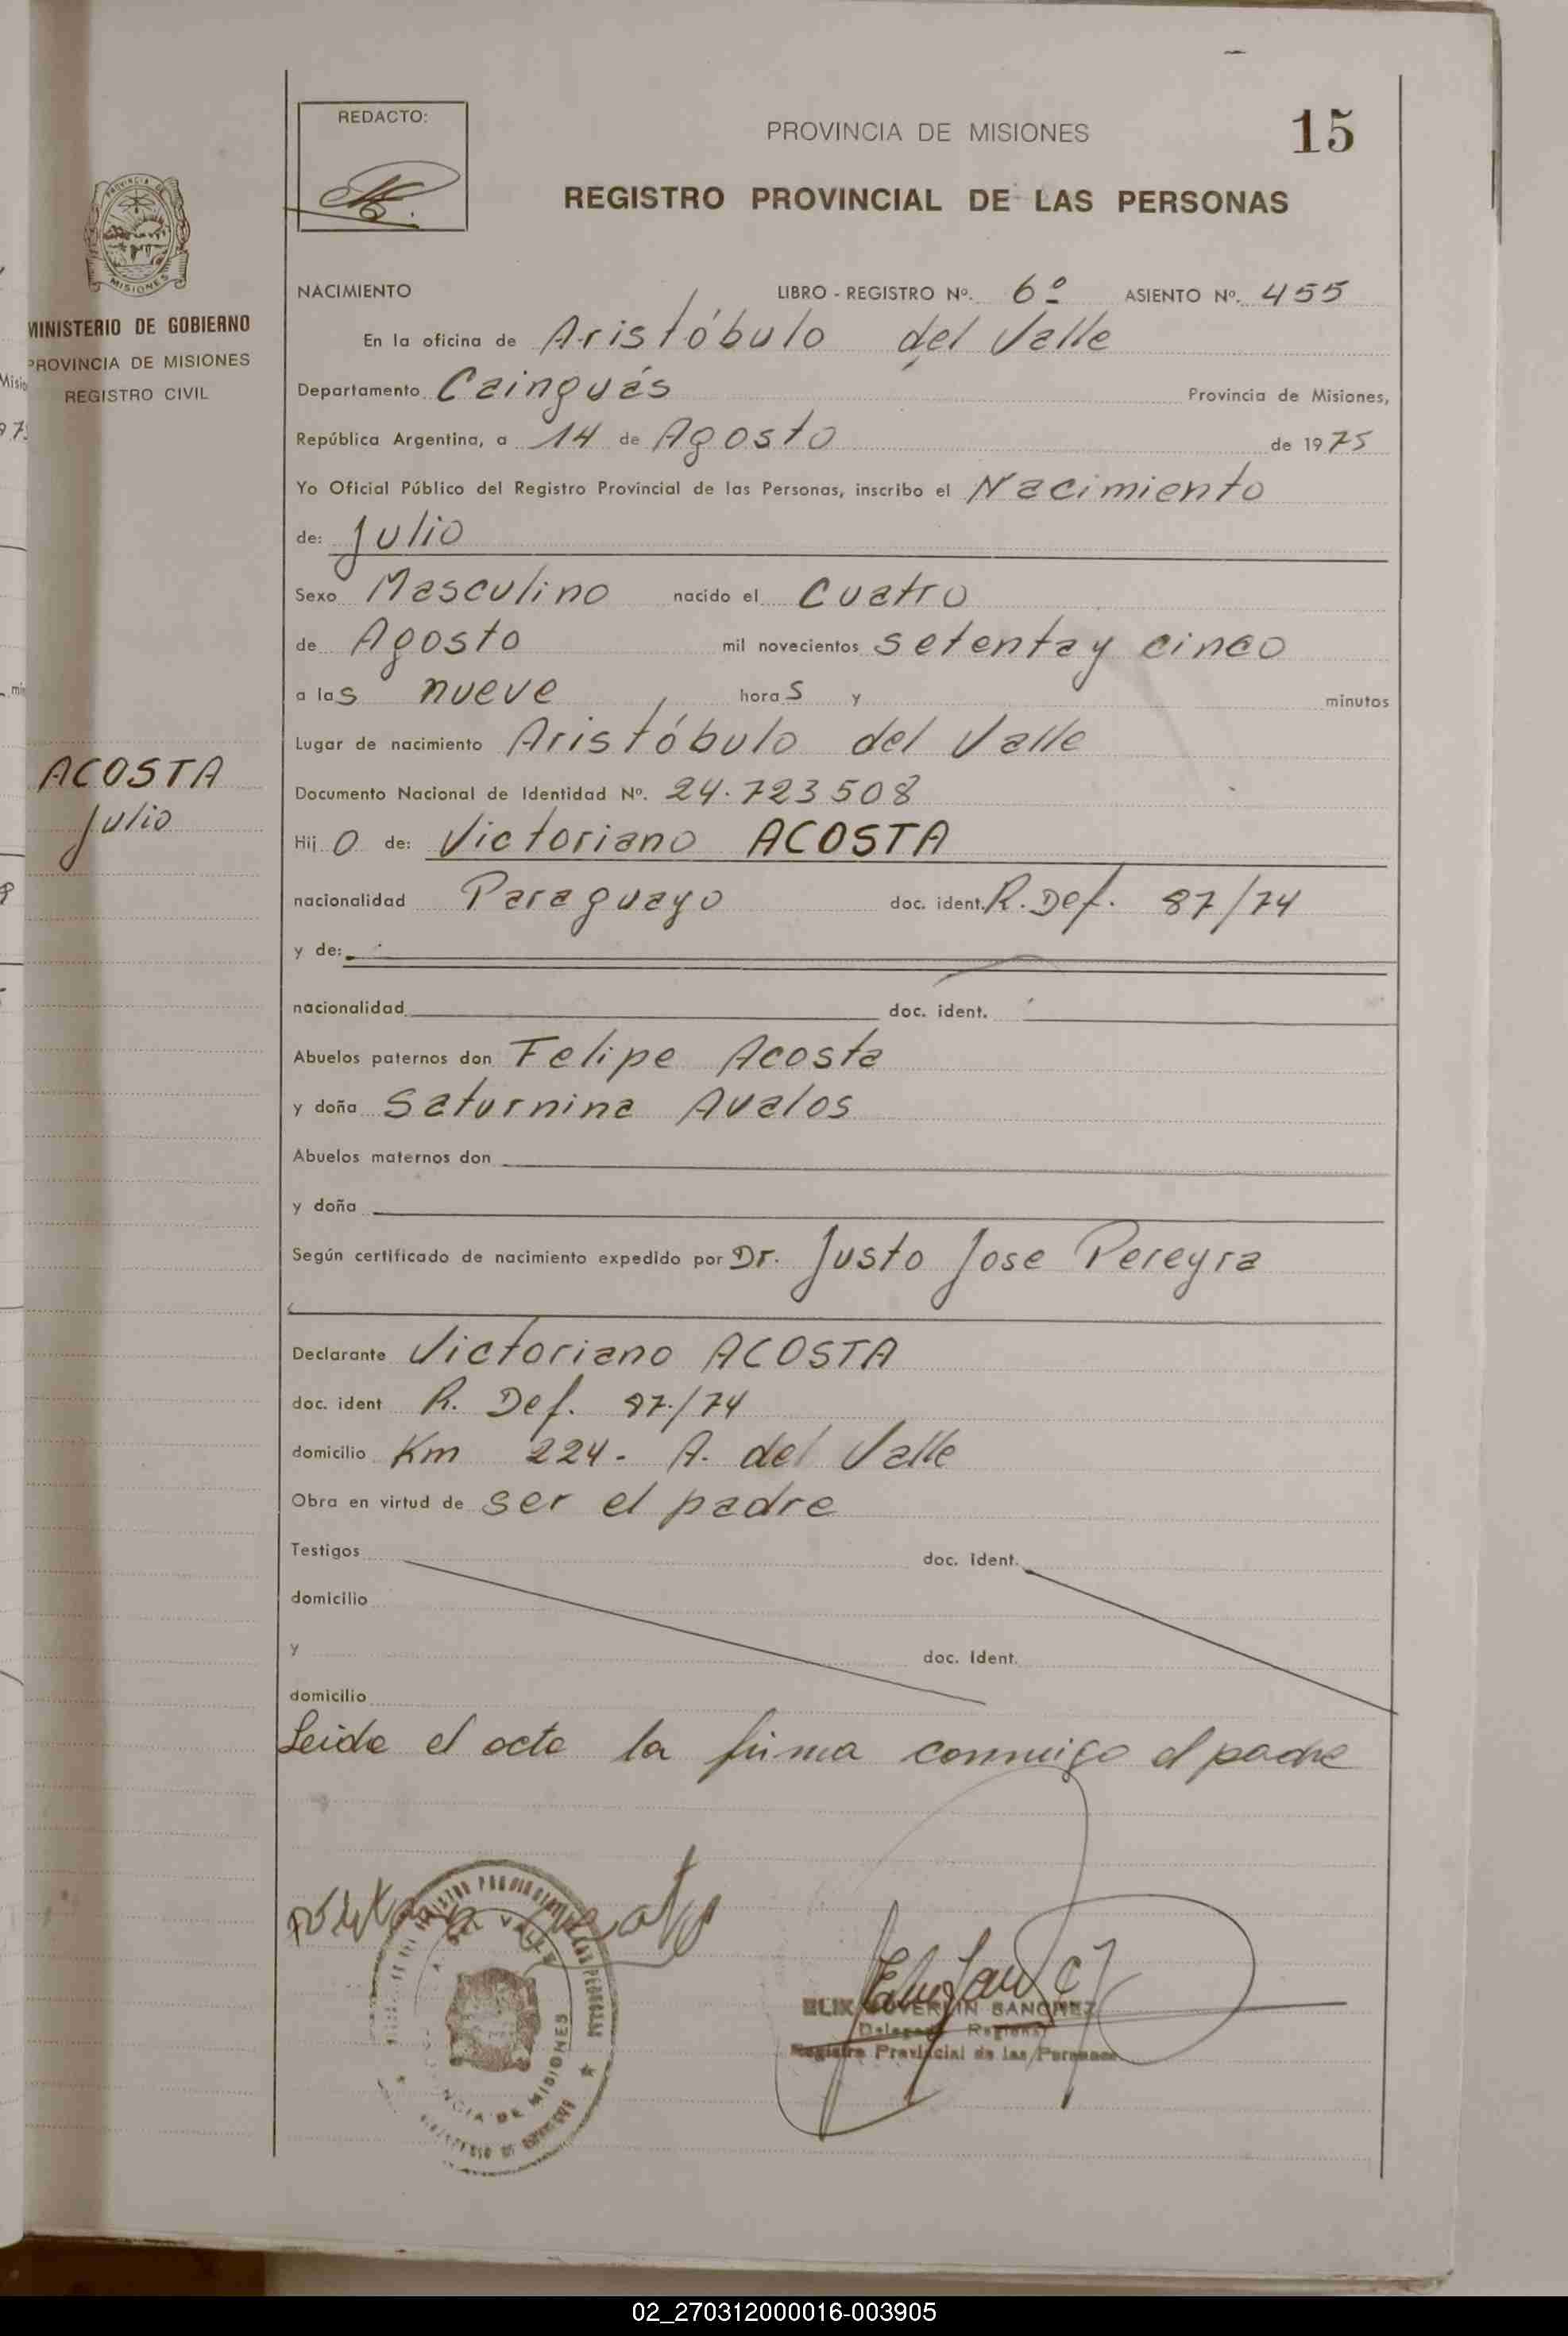 REDACTO:
PROVINCIA DE MISIONES
15
REGISTRO PROVINCIAL DE LAS PERSONAS
MINISTERIO DE GOBIERNO
PROVINCIA DE MISIONES
REGISTRO CIVIL
ACOSTA
Julio
NACIMIENTO LIBRO - REGISTRO Nº. 6º ASIENTO Nº. 455
En la oficina de Aristóbulo del Valle
Departamento Cainguás Provincia de Misiones,
República Argentina, a 14 de Agosto de 1975
Yo Oficial Público del Registro Provincial de las Personas, inscribo el Nacimiento
de: Julio
Sexo Masculino nacido el Cuatro
de Agosto mil novecientos setenta y cinco
a las nueve horas y minutos
Lugar de nacimiento Aristóbulo del Valle
Documento Nacional de Identidad Nº. 24.723508
Hijo de: Victoriano ACOSTA
nacionalidad Paraguayo doc. ident. R. Def. 87/74
y de:
nacionalidad doc. ident.
Abuelos paternos don Felipe Acosta
y doña Saturnina Avalos
Abuelos maternos don
y doña
Según certificado de nacimiento expedido por Dr. Justo Jose Pereyra
Declarante Victoriano ACOSTA
doc. ident R. Def. 87/74
domicilio Km 224- A. del Valle
Obra en virtud de ser el padre
Testigos doc. ident.
domicilio
y doc. Ident.
domicilio
Leida el acta la firma conmigo el padre
SANCHEZ
Delegado Regional
Registro Provincial de las Personas
VALLE
PROVINCIA DE MISIONES
02_270312000016-003905